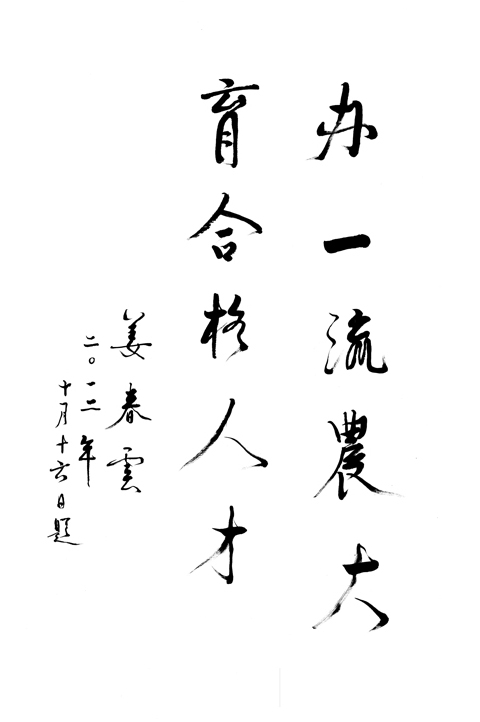 办一流農大
育合格人才
姜春雲
二〇一二年
十月十六日題